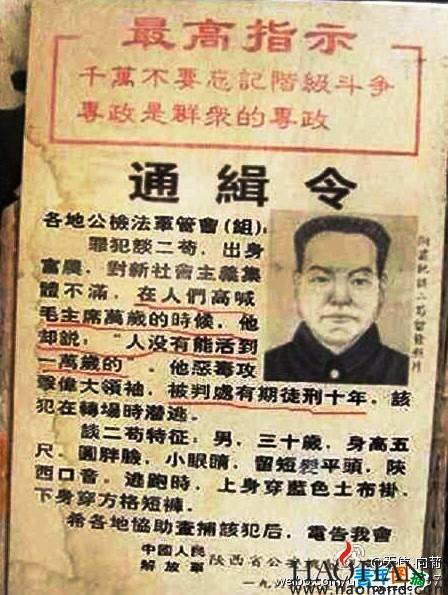 最高指示
千萬不要忘記階級斗争
專政是群衆的專政
通緝令
各地公檢法軍管會(組):
罪犯談二苟，出身
富農，對新社會主義集
體不滿，在人們高喊
毛主席萬歲的時候，他
却説："人没有能活到
一萬歲的"，他惡毒攻
擊偉大領袖，被判處有期徒刑十年，該
犯在轉場時潜逃。
談二苟特征：男，三十歲，身高五
尺，圓胖臉，小眼睛，留短變平頭，陝
西口音，逃跑時，上身穿藍色土布褂，
下身穿方格短褲。
希各地協助查捕該犯后，電告我會
中國人民
解放軍 陝西省公
一九六
談二苟留檢照片